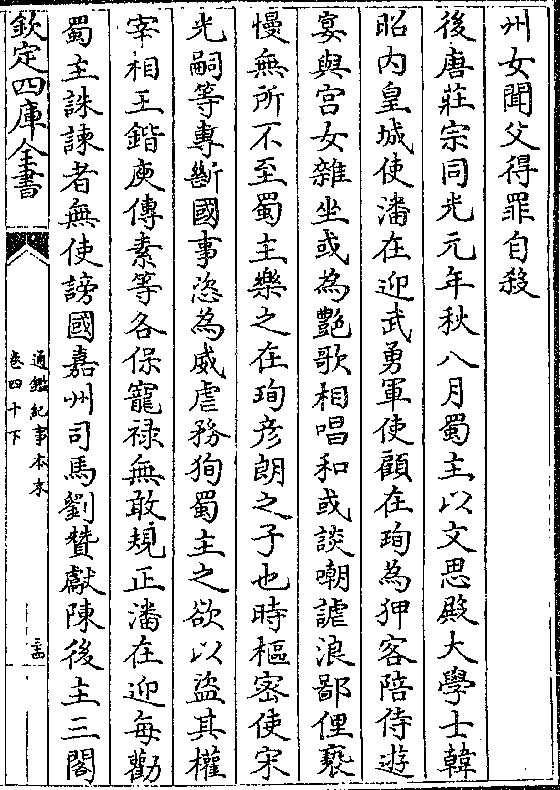 州女聞父得罪自殺
後唐莊宗同光元年秋八月蜀主以文思殿大學士韓
昭内皇城使潘在迎武勇軍使顧在珣為狎客陪侍遊
宴與宫女雜坐或為艷歌相唱和或談嘲謔浪鄙俚褻
慢無所不至蜀主樂之在珣彦朗之子也時樞密使宋
光嗣等專斷國事恣為威虐務狥蜀主之欲以盜其權
宰相王鍇庾傳素等各保寵禄無敢規正潘在迎每勸
蜀主誅諫者無使謗國嘉州司馬劉贊獻陳後主三閣
欽定四庫全書
通鑑紀事本末
卷四十下